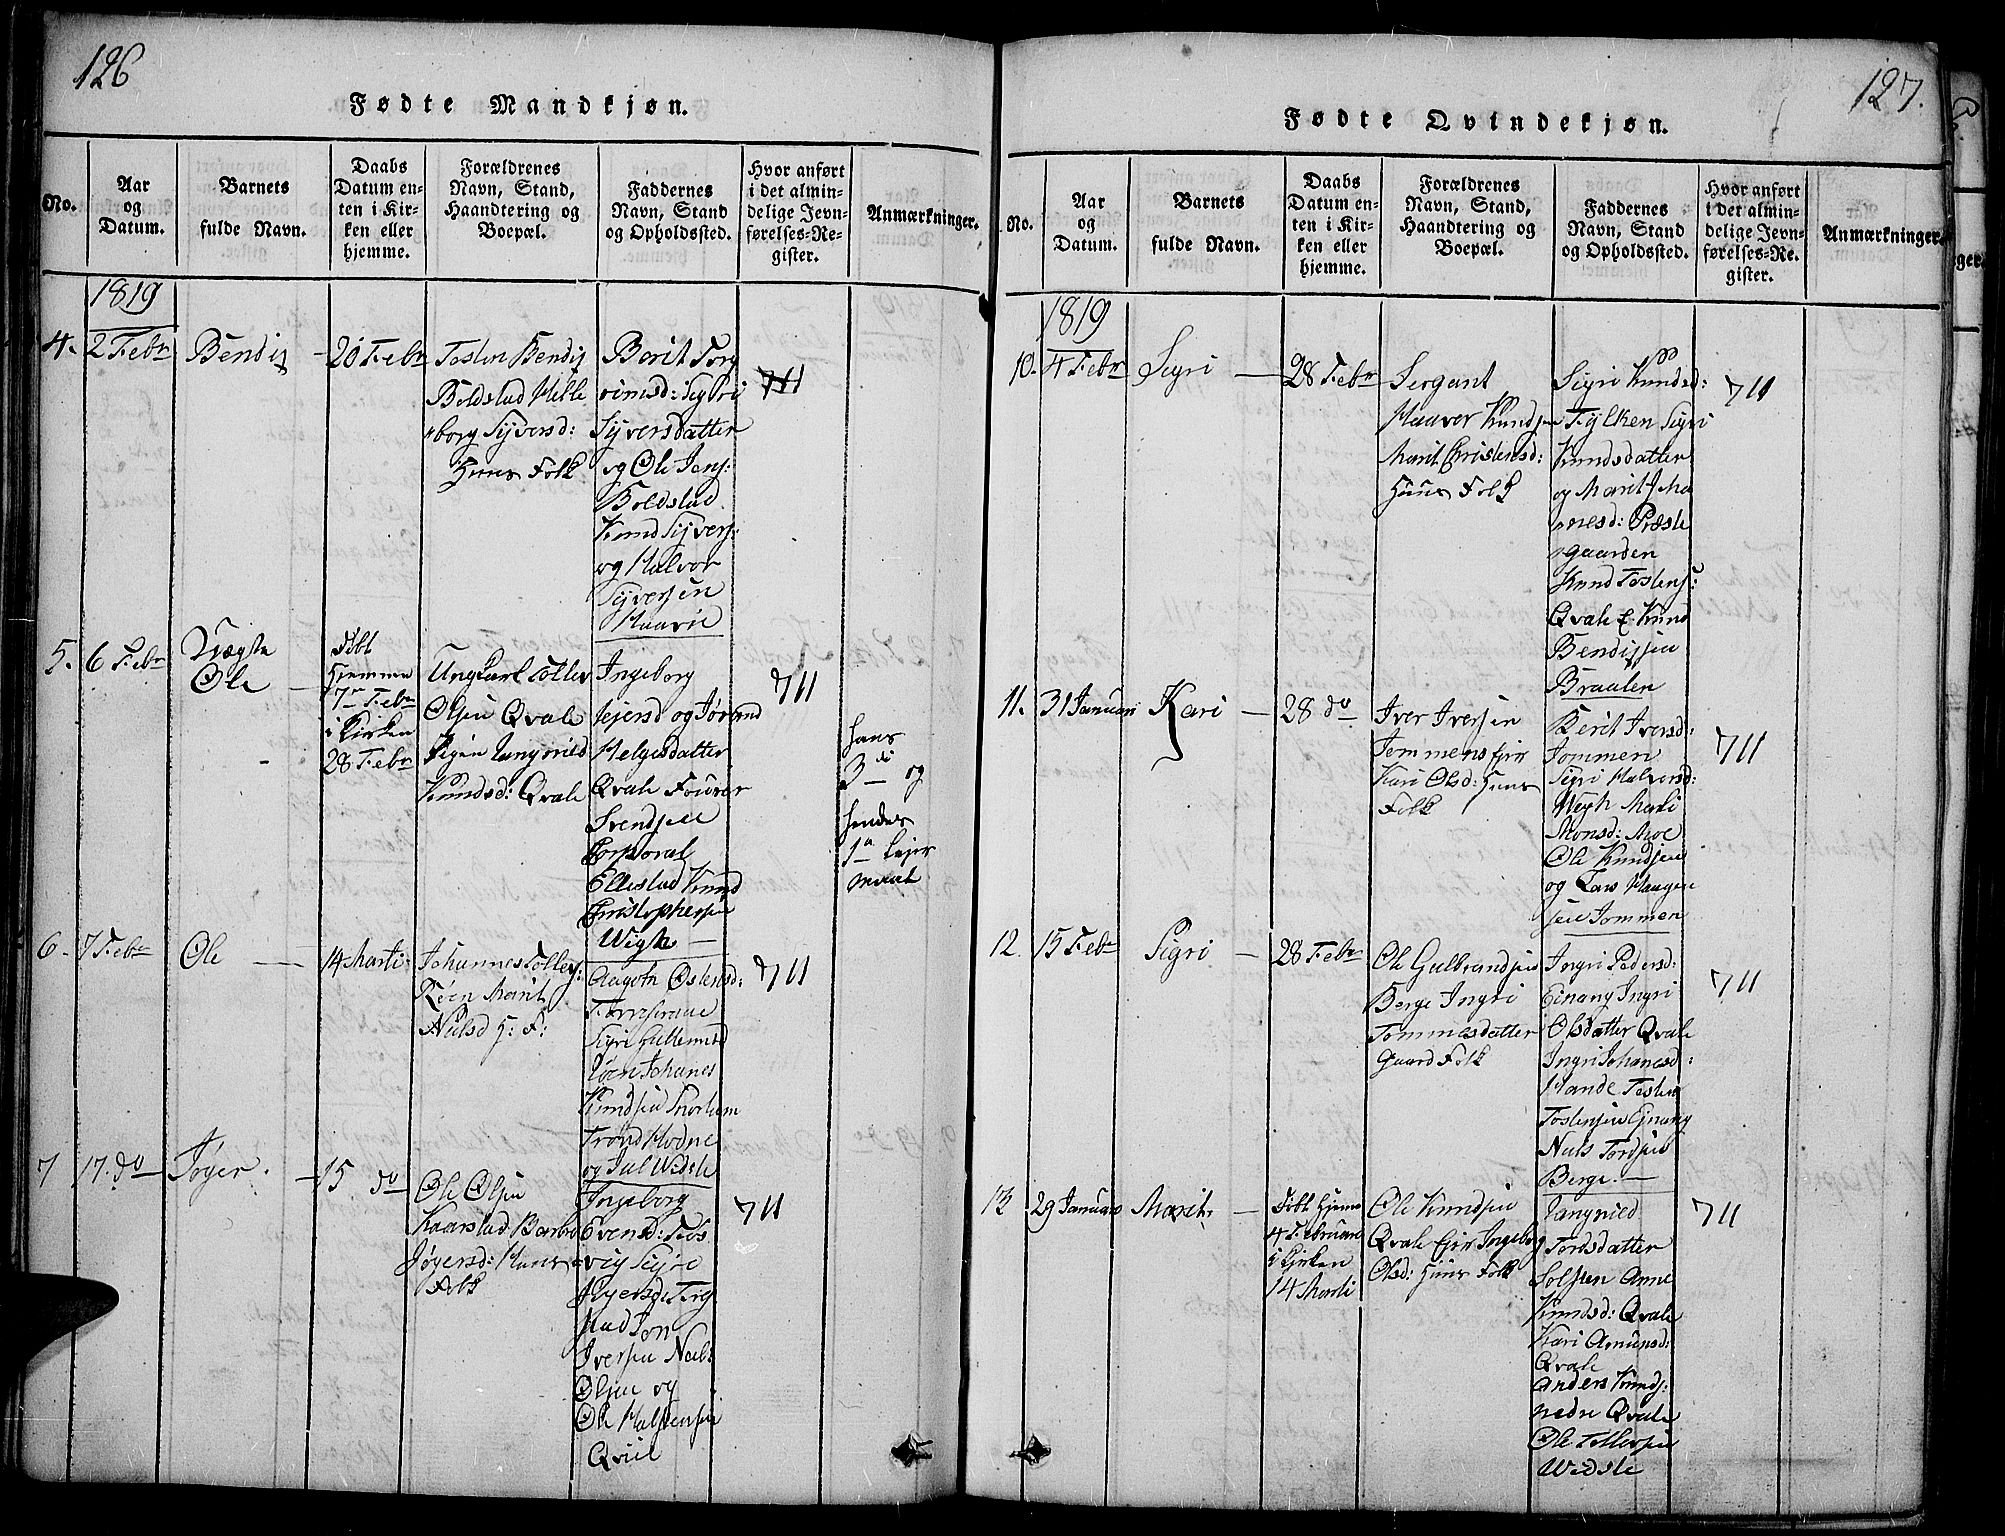 126
Fødte Mandkjøn.
No.
Aar
og
Datum.
Barnets
fulde Navn.
Daabs
Datum en-
ten i Kir-
ken eller
hjemme.
Forældrenes
Navn, Stand,
Haandtering og
Boepæl.
Faddernes
Navn, Stand
og Opholdssted.
Hvor anført
i det almin-
delige Jevn-
førelses-Re-
gister.
Anmærkninger.
1819
4.
2 Febr
Bendix
20 Febr
Tosten Bendix
Boldstad Hille
borg Syversd:
Huus Folk
Berit Torg
rimsd: Sigri
Syversdatter
og Ole Jens:
Boldstad
Knud Syvers:
og Halvor
Syversen
711
5.
6 Febr
Uægte
Ole
døbt
Hjemme
7r Febr
i Kirken
28 Febr
Ungkarl Toller
Olsen Qvale
Pigen Rangnild
Knudsd: Qvale
Ingeborg
og Jørand
Helgesdatter
Qvale
Svendsen
Corporal
Ellestad Knud
Christophersen
Wigh
711
hans
3di og
hendes
1a Lejer
maal
6.
7 Febr
Ole
14 Marti
Johannes Tollefs:
Røen Marit
Nielsd H: F:
Aagoth Ostensd:
Sigri Guttormsd
Røen Johanes
Knudsen
Trond Hodne
og Juul Wedsle
711
7
17. do
Jøger.
15 do
Ole Olsen
Kaarstad Barbro
Jøgersd: Huus
Folk
Ingeborg
Evensd: Fos
vig Sigri
Torg
stad Jon
Iversen Niels
Olsen og
Ole Halstensen
Qviel
711
127.
Fødte Qvindekjøn.
No.
Aar
og
Datum.
Barnets
fulde Navn.
Daabs
Datum en-
ten i Kir-
ken eller
hjemme.
Forældrenes
Navn, Stand,
Haandtering og
Boepæl.
Faddernes
Navn, Stand
og Opholdssted.
Hvor anført
i det almin-
delige Jevn-
førelses-Re-
gister.
Anmærkninger.
1819
10.
4 Febr
Sigri
28 Febr
Sergant
Haaver Knudsen
Marit Christensd:
Huus Folk
Sigri Knudsd:
Fylken Sigri
Knudsdatter
og Marit Jha
nesd: Præste
gaarden
Knud Tostens:
Qvale & Knud
Bendixsen
Braaten
711
11.
31 Januari
Kari
28 do
Iver Iversen
Jommens Ejer
Kari Olsd: Huus
Folk
Berit Iversd:
Jommen
Sigri Halvorsd:
Wigh Mari
Monsd: Moe
Ole Knudsen
og Lars Haagen
sen Jommen
711
12.
15 Febr
Sigri
28 Febr
Ole Gulbrandsen
Berge Ingri
Tommesdatter
Gaard Folk
Ingri Pedersd:
Einang Ingri
Olsdatter Qvale
Ingri Johanesd:
Hande Tosten
Tostensen Ejnang
Niels Tordsen
Berge.
711
13.
29 Januari
Marit.
døbt Hjeme
4 Februari
i Kirken
14 Marti
Ole Knudsen
Qvale Ejer Ingeborg
Olsd: Huus Folk
Rangnild
Tordsdatter
Solsten Anne
Knudsd: Qvale
Kari Amundsd:
Qvale
Anders Knuds:
nedre Qvale
Ole Tollefsen
Wedsle
711